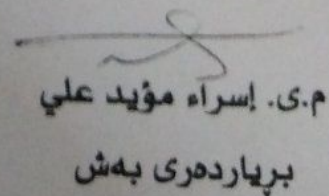 م.ی. إسراء مؤيد علي
بریاردەری بەش